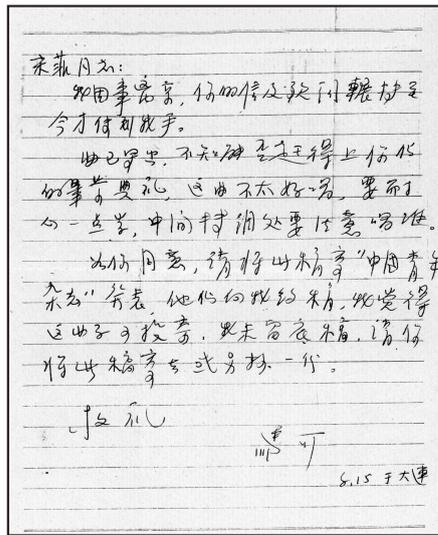 宋菲同志：
我因事离京，你的信及歌词辗转至
今才传到我手。
曲已写出，不知硬是赶得上你们
的毕业典礼，这曲不太好唱，要耐
心一点学，中间转调处要注意唱准。
如你同意，请将此稿寄"中国青年
杂志"发表，他们向我约稿，我觉得
这曲子可投寄，我未留底稿，请你
将此稿寄去或另抄一份。
敬礼
马可
8.15 于大连